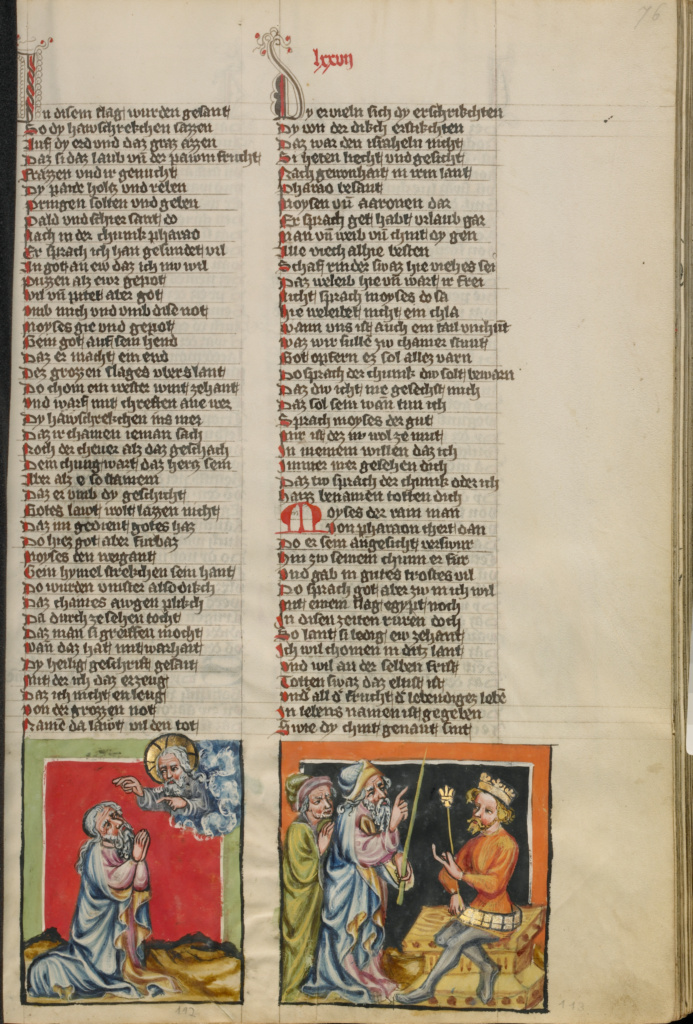 76
lxxvii
In disem slag wurden gesant
So dy hawschrekchen sazzen
Auf dy erd und daz gras azzen
Daz si daz laub un̄ der pawm frucht
Frazzen und ir genucht
Dy paide holtz und velen
Pringen solten und geben
Pald und schier sant do
Nach in der chunik pharao
Er sprach ich han gesundet vil
In got an ew daz ich nw wil
Puzzen als ewr gepot
Vil un̄ pitet aber got
Umb mich und umb dise not
Moyses gie und gepot
Gem got auf sein hend
Daz er macht ein end
Dez grozzen slages uber slant
Do chom ein wester wint zehant
Und warf mit chreften ane wer
Dy hawschrekchen ins mer
Daz ir chainen ieman sach
Noch der cheuer als daz geschach
Dem chung wart daz hertz sein
Aber als e so stainein
Daz er umb dy geschicht
Gotes lawt wolt lazzen nicht
Daz im gedient gotes haz
Do hiez got aber furbaz
Moyses den weigant
Gem hymel strekchen sein hant
Do wurden vinster also dikch
Daz chaines awgen plikch
Da durch ze sehen tocht
Daz man si greiffen mocht
Wan daz hat mit warhait
Dy heilig geschrift gesait
Mit der ich daz erzeug
Daz ich nicht enleug
Von der grozzen not
Namen da lawt vil den tot
Dy ervieln sich dy erschrikchten
Dy von der dikch erstikchten
Daz war den israheln nicht
Si heten liecht und gesicht
Nach gewonhait in irem lant
Pharao besant
Moysen un̄ aaronen dar
Er sprach get habt urlaub gar
Man un̄ weib un̄ chint dy gen
Alle viech alhie besten
Schaf rinder swaz hie viehes sei
Daz weleib hie un̄ wart ir frei
Nicht sprach moyses do sa
Hie weleibet nicht ein chla
Wann uns ist auch ein tail unchunt
Waz wir sullen zw chainer stunt
Got opfern ez sol allez varn
Do sprach der chunik dw solt bewarn
Daz dw icht me gesehst mich
Daz sol sein wan tun ich
Sprach moyses der gut
Mir ist dez nw wol ze mut
In meinem willen daz ich
Immer mer gesehen dich
Daz tw sprach der chunik oder ich
Haiz benamen totten dich
Moyses der rain man
Von pharaon chert dan
Do er sein angesicht verswur
Hin zw seinem chunn er fur
Und gab in gutes trostes vil
Do sprach got aber zw im ich wil
Mit einem slag egypt noch
In disen zeiten ruren doch
So lant si ledig ew zehant
Ich wil chomen in ditz lant
Und wil an der selben frist
Totten swaz daz eltist ist
Und all d' frucht d' lebendiges lebē
In lebens namen ist gegeben
Swie dy chint genant sint
112
113